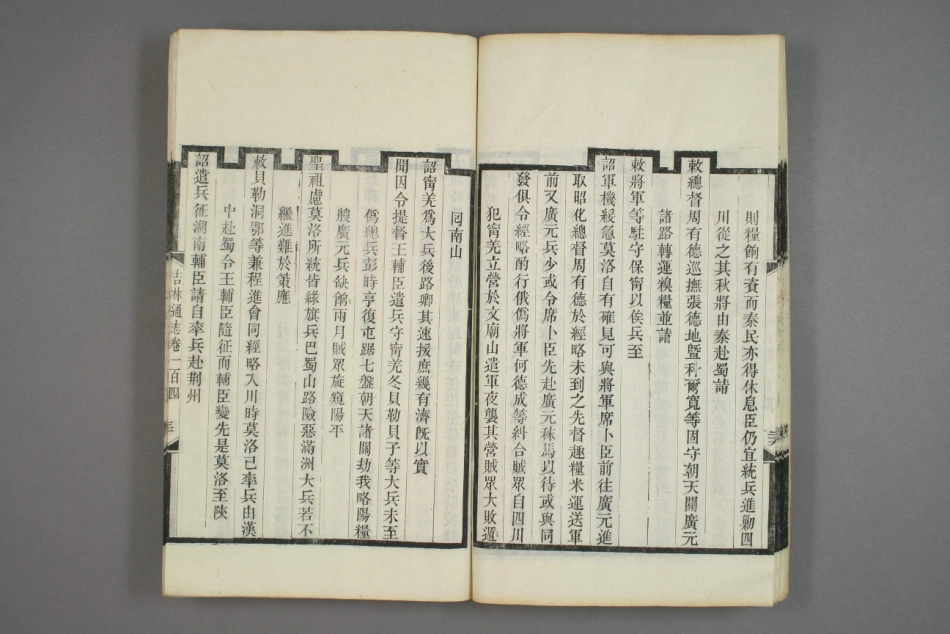 則糧餉有資而秦民亦得休息臣仍宜統兵進勦四
川從之其秋將由秦赴蜀請
敕總督周有德巡撫張德地曁科爾寬等固守朝天關廣元
諸路轉運糗糧並請
敕將軍等駐守保甯以俟兵至
詔軍機緩急莫洛自有確見可與將軍席卜臣前往廣元進
取昭化總督周有德於經略未到之先督趣糧米運送軍
前又廣元兵少或令席卜臣先赴廣元秣馬以待或與同
發俱令經略酌行俄僞將軍何德成等糾合賊眾自四川
犯甯羌立營於文廟山遣軍夜襲其營賊眾大敗遁
囘南山
詔甯羌爲大兵後路卿其速援庶幾有濟旣以實
聞因令提督王輔臣遣兵守甯羌冬貝勒貝子等大兵未至
僞總兵彭時亨復屯踞七盤朝天諸關劫我略陽糧
艘廣元兵缺餉兩月賊眾旋窺陽平
聖祖慮莫洛所統皆綠旗兵巴蜀山路險惡滿洲大兵若不
繼進難於策應
敕貝勒洞鄂等兼程進會同經略入川時莫洛已率兵由漢
中赴蜀令王輔臣隨征而輔臣變先是莫洛至陝
詔遣兵征湖南輔臣請自率兵赴荆州
吉林通志卷一百四